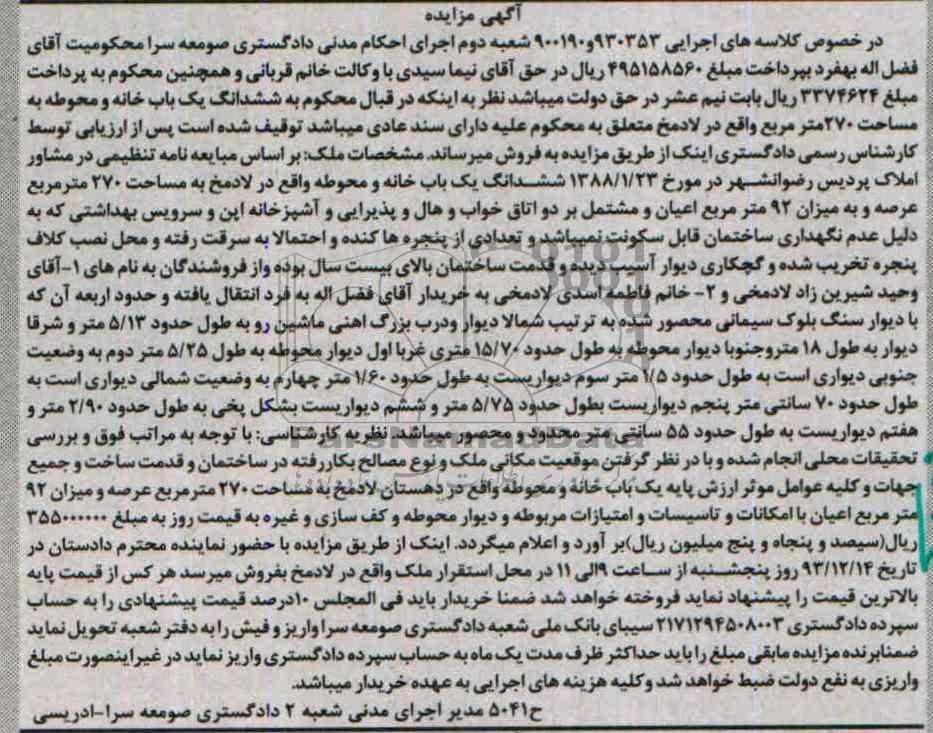 آگهی مزایده
در خصوص کلاسه های اجرایی ۹۳۰۳۵۳و۹۰۰۱۹۰ شعبه دوم اجرای احکام مدنی دادگستری صومعه سرا محکومیت آقای
فضل اله بهفرد بپرداخت مبلغ ۴۹۵۱۵۸۵۶۰ ریال در حق آقای نیما سیدی با وکالت خانم قربانی و همچنین محکوم به پرداخت
مبلغ ۳۳۷۴۶۲۴ ریال بابت نیم عشر در حق دولت میباشد نظر به اینکه در قبال محکوم به ششدانگ یک باب خانه و محوطه به
مساحت ۲۷۰متر مربع واقع در لادمخ متعلق به محکوم علیه دارای سند عادی میباشد توقیف شده است پس از ارزیابی توسط
کارشناس رسمی دادگستری اینک از طریق مزایده به فروش میرساند. مشخصات ملک: بر اساس مبایعه نامه تنظیمی در مشاور
املاک پردیس رضوانشهر در مورخ ۱۳۸۸/۱/۲۳ ششدانگ یک باب خانه و محوطه واقع در لادمخ به مساحت ۲۷۰ مترمربع
عرصه و به میزان ۹۲ متر مربع اعیان و مشتمل بر دو اتاق خواب و هال و پذیرایی و آشپزخانه اپن و سرویس بهداشتی که به
دلیل عدم نگهداری ساختمان قابل سکونت نمیباشد و تعدادی از پنجره ها کنده و احتمالا به سرقت رفته و محل نصب کلاف
پنجره تخریب شده و گچکاری دیوار آسیب دیده و قدمت ساختمان بالای بیست سال بوده واز فروشندگان به نام های ۱-آقای
وحید شیرین زاد لادمخی و ۲- خانم فاطمه اسدی لادمخی به خریدار آقای فضل اله به فرد انتقال یافته و حدود اربعه آن که
با دیوار سنگ بلوک سیمانی محصور شده به ترتیب شمالا دیوار ودرب بزرگ اهنی ماشین رو به طول حدود ۵/۱۳ متر و شرقا
دیوار به طول ۱۸ متروجنوبا دیوار محوطه به طول حدود ۱۵/۷۰ متری غربا اول دیوار محوطه به طول ۵/۲۵ متر دوم به وضعیت
جنوبی دیواری است به طول حدود ۱/۵ متر سوم دیواریست به طول حدود ۱/۶۰ متر چهارم به وضعیت شمالی دیواری است به
طول حدود ۷۰ سانتی متر پنجم دیواریست بطول حدود ۵/۷۵ متر و ششم دیواریست بشکل پخی به طول حدود ۲/۹۰ متر و
هفتم دیواریست به طول حدود ۵۵ سانتی متر محدود و محصور میباشد. نظریه کارشناسی: با توجه به مراتب فوق و بررسی
تحقیقات محلی انجام شده و با در نظر گرفتن موقعیت مکانی ملک و نوع مصالح بکاررفته در ساختمان و قدمت ساخت و جمیع
جهات و کلیه عوامل موثر ارزش پایه یک باب خانه و محوطه واقع در دهستان لادمخ به مساحت ۲۷۰ مترمربع عرصه و میزان ۹۲
متر مربع اعیان با امکانات و تاسیسات و امتیازات مربوطه و دیوار محوطه و کف سازی و غیره به قیمت روز به مبلغ ۳۵۵۰۰۰۰۰۰
ریال(سیصد و پنجاه و پنج میلیون ریال)بر آورد و اعلام میگردد. اینک از طریق مزایده با حضور نماینده محترم دادستان در
تاریخ ۹۳/۱۲/۱۴ روز پنجشنبه از ساعت ۹الی ۱۱ در محل استقرار ملک واقع در لادمخ بفروش میرسد هر کس از قیمت پایه
بالاترین قیمت را پیشنهاد نماید فروخته خواهد شد ضمنا خریدار باید فی المجلس ۱۰درصد قیمت پیشنهادی را به حساب
سپرده دادگستری ۲۱۷۱۲۹۴۵۰۸۰۰۳ سیبای بانک ملی شعبه دادگستری صومعه سرا واریز و فیش را به دفتر شعبه تحویل نماید
ضمنابرنده مزایده مابقی مبلغ را باید حداکثر ظرف مدت یک ماه به حساب سپرده دادگستری واریز نماید در غیر اینصورت مبلغ
واریزی به نفع دولت ضبط خواهد شد وکلیه هزینه های اجرایی به عهده خریدار میباشد.
ح۵۰۴۱ مدیر اجرای مدنی شعبه ۲ دادگستری صومعه سرا-ادریسی